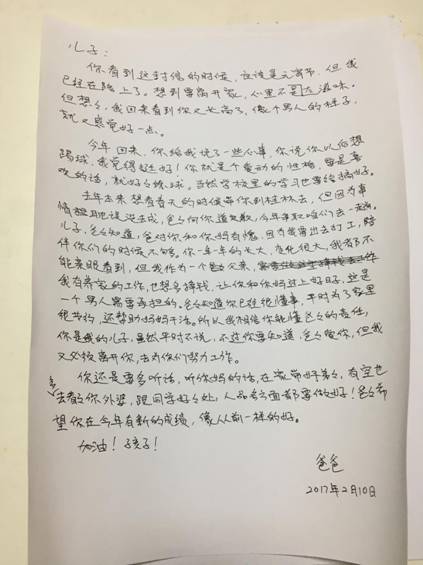 儿子：
你看到这封信的时候，应该是元宵节，但我
已经在路上了。想到要离开家，心里不是滋味。
但想想，我回来看到你又长高了，像个男人的样子，
就又感觉好一点。
今年回来，你给我说了一些小事，你说你以后想
踢球，我觉得挺好！你就是个爱动的性格，要是喜
欢的话，就好好练球。当然学校里的学习也要给搞好。
去年本来想春天的时候带你到桂林去，但因为事
情耽助说没去成，爸爸向你道歉，今年争取咱们去一起。
儿子，爸爸知道，爸对你和你妈有愧，因为我要出去打工，陪
伴你们的时候不够。你一年一年的长大，变化很大，我有不
能亲眼看到，但我作为一个父亲，
我有养家的工作，也想多挣钱，让你和你妈过上好日子，这是
一个男人需要承担的，爸爸知道你已经很懂事，平时为了家里
很节约，还帮助妈妈干活。所以我相信你能懂爸爸的责任，
你是我的儿子，虽然平时不说，不过你要知道，爸爸爱你，但我
又必须离开你，去为你们努力工作。
你还是要多听话，听你妈的话，在家带好弟弟，有空也
多去看看你外婆，跟同学好好处，人品各方面都要做好！爸爸希
望你在今年有新的成绩，像从前一样的好。
加油！孩子！
爸爸
2017年2月10日